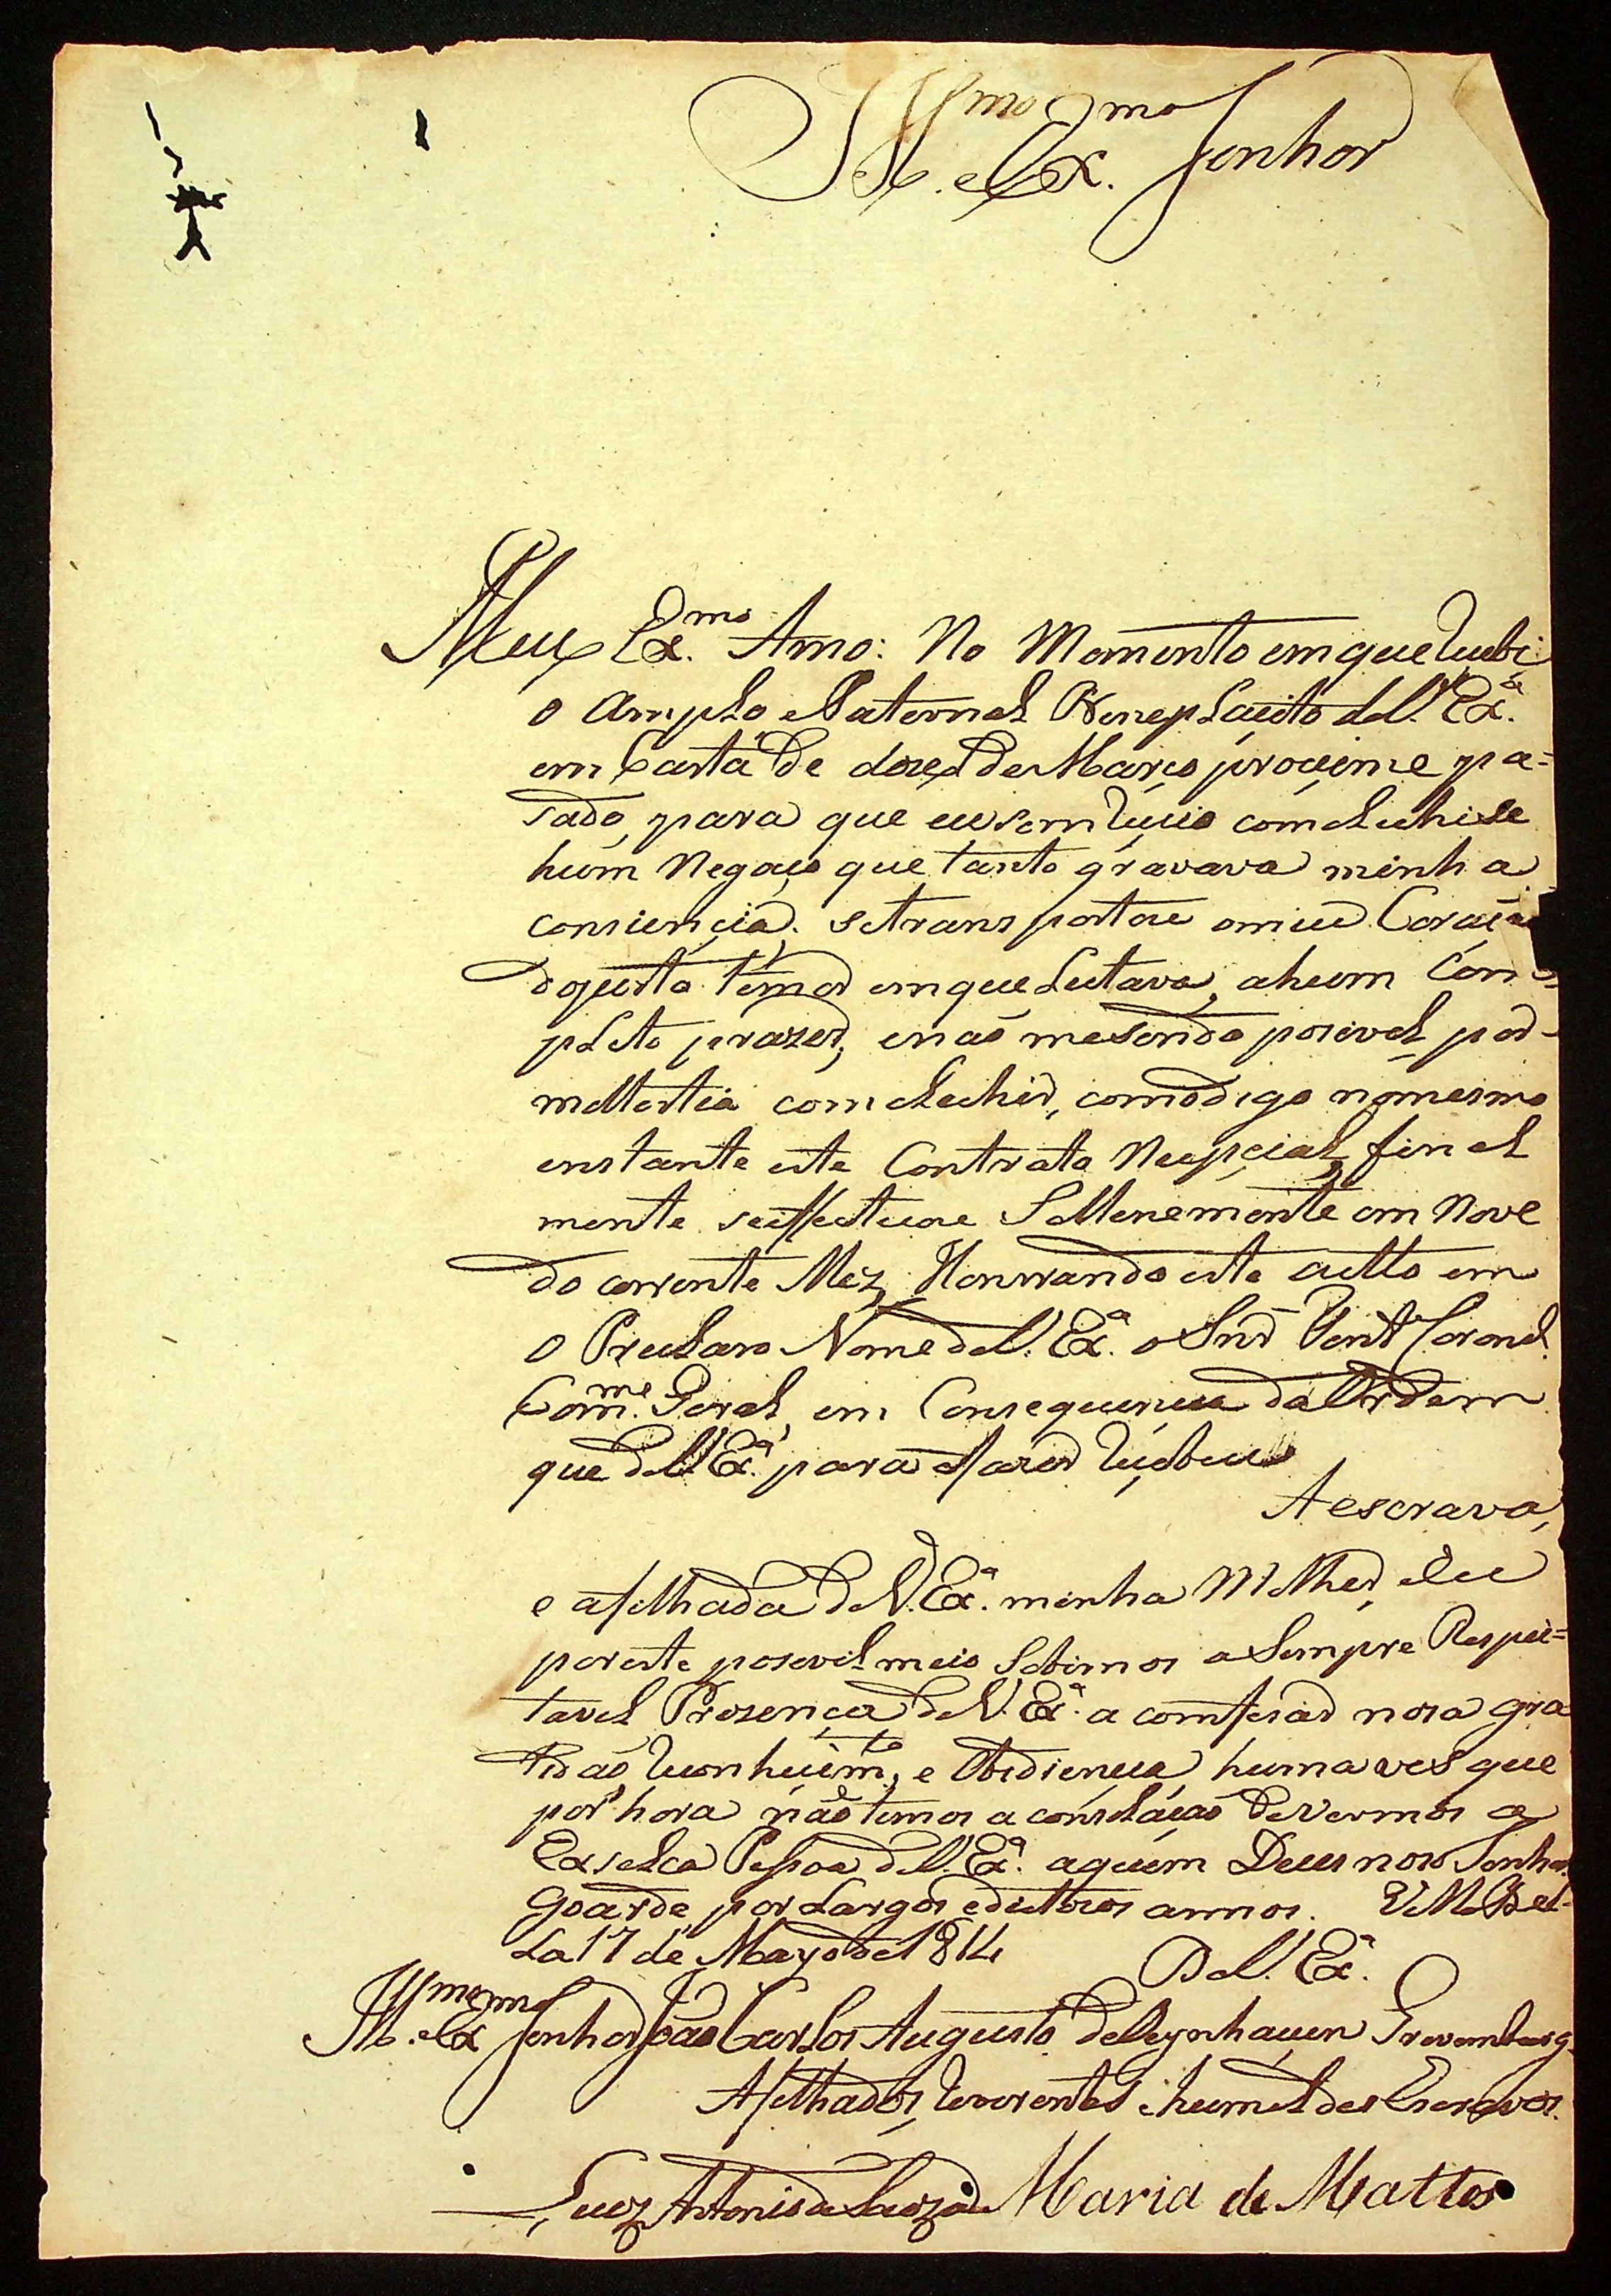 Ill.mo e Ex.mo Senhor
Meu Ex.mo Amo: No Momento em que recebi
o amplo e Paternal Beneplacito de V. Ex.a
em Carta de doze de Março proccimo pa=
sado, para que eu sem receio comcluhise
hum Negocio que tanto gravava minha
conciencia. se transportou o meu Coração
do justo temor em que Lutava, a hum Com=
pleto prazer; e não me sendo posivel por
mollestia comcluhir, como digo no mesmo
enstante este Contrato Nupcial, final
mente se effectuou Sollenemente em nove
do corrente Mez, Honrrando este actto em
o Preclaro Nome de V. Ex.a o Snr. Tent. Coronel
Com.me Geral, em Consequencia da Ordem
que de V. Ex.a para o fazer recebeu
A escrava,
e afilhada de V. Ex.a minha Molher, e Eu
por este posevel meio Sobimos a Sempre Respei=
tavel Prezença de V. Ex.a a comfesar nosa gra
tidaõ reconhecim.to, e Obediencia, huma ves que
por hora não temos a consolação de vermos a
Exselca Pessoa de V. Ex.a a quem Deus noso Senhor
Goarde por Largos e ditosos annos. V.a Bel-
la 17 de Mayo de 1814
De V. Ex.a
Ill.mo e Ex.mo Senhor João Carlos Augusto de Oeynhausen Grevemberg
Afilhados, reverentes e humildes Escravos.
Luiz Antonio de Souza Maria de Mattos